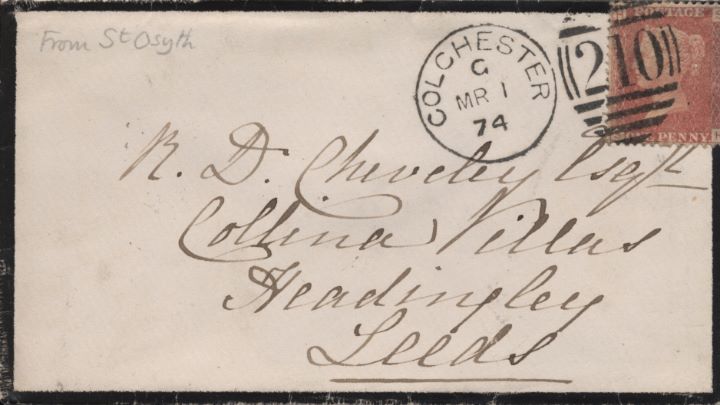 From St Osyth
COLCHESTER
G
MR 1
74
210
POSTAGE
ONE PENNY
R. D. Cheveley Esqre
Collina Villas
Headingley
Leeds